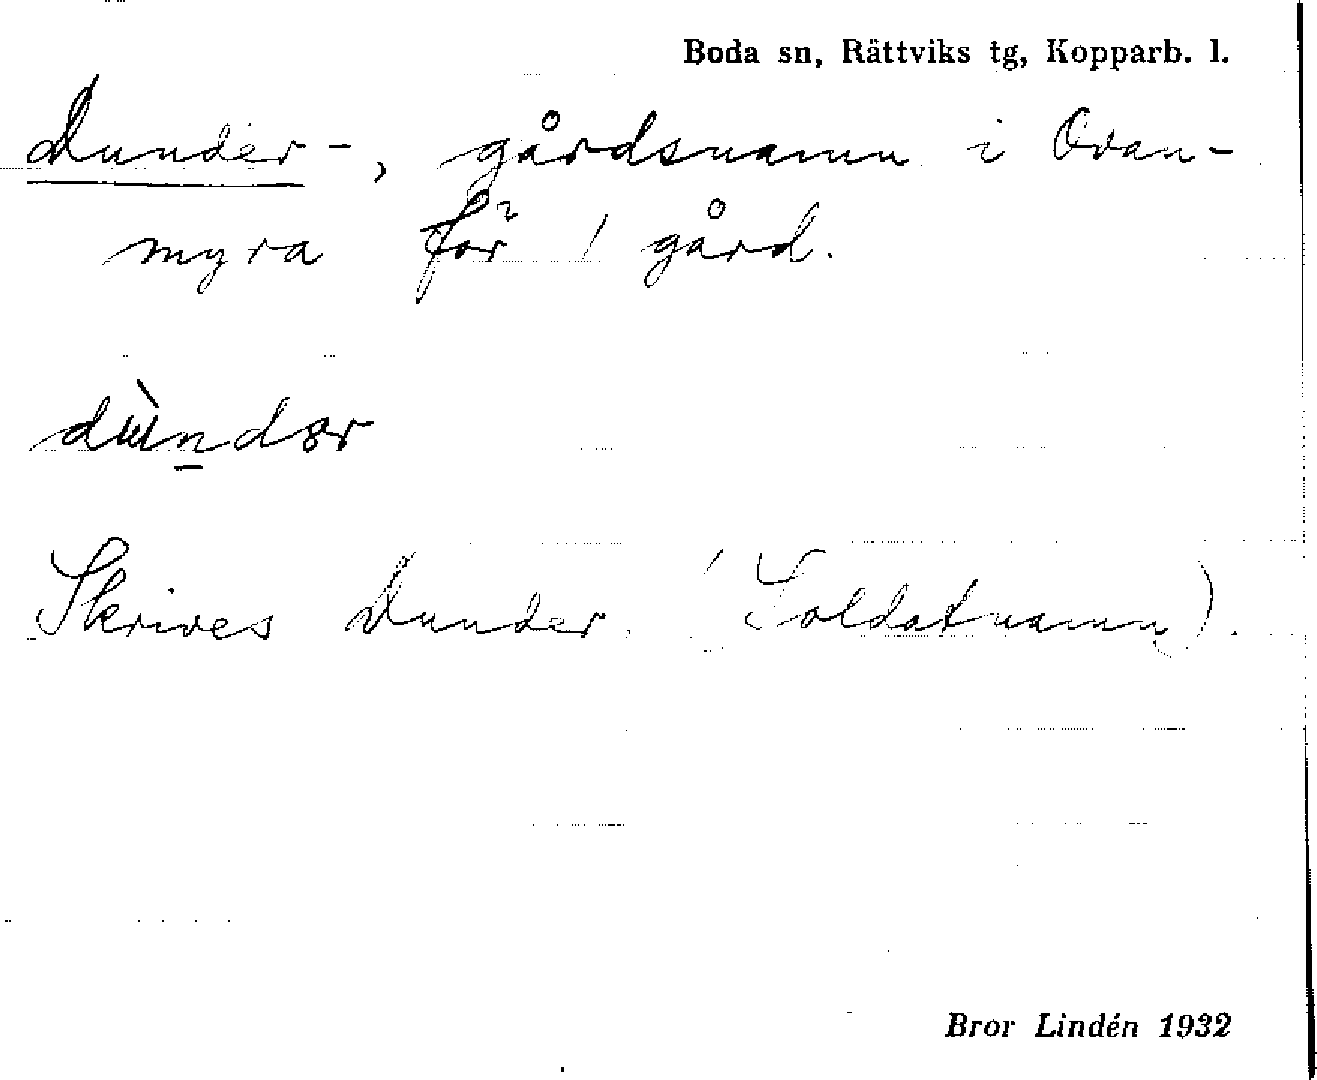 Boda sn, Rättviks tg, Kopparb. l.
Dunder-, gårdsnamn i Ovan-
myra för 1 gård.
Skrives Dunder. (Soldatnamn).
Bror Lindén 1932